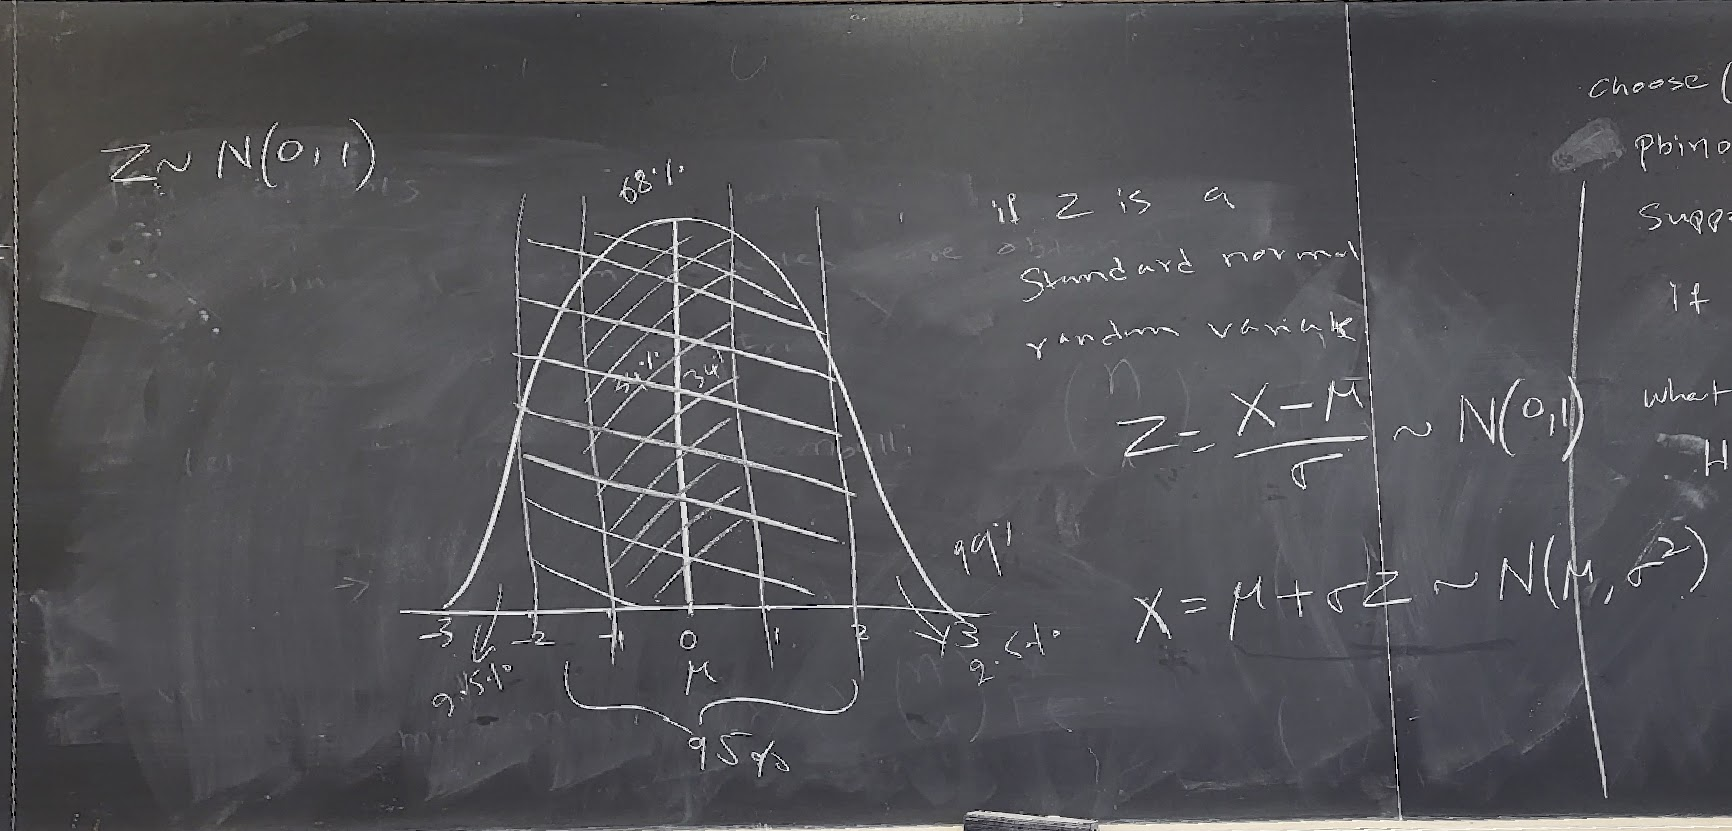 Z ~ N(0,1)
68%
34% 34%
99%
-3 -2 -1 0 1 2 3
μ
2.5% 2.5%
95%
if Z is a
Standard normal
random variable
Z = X-μ / σ ~ N(0,1)
X = μ + σZ ~ N(μ, σ²)
Choose (
Pbino
Suppo
If
What
H